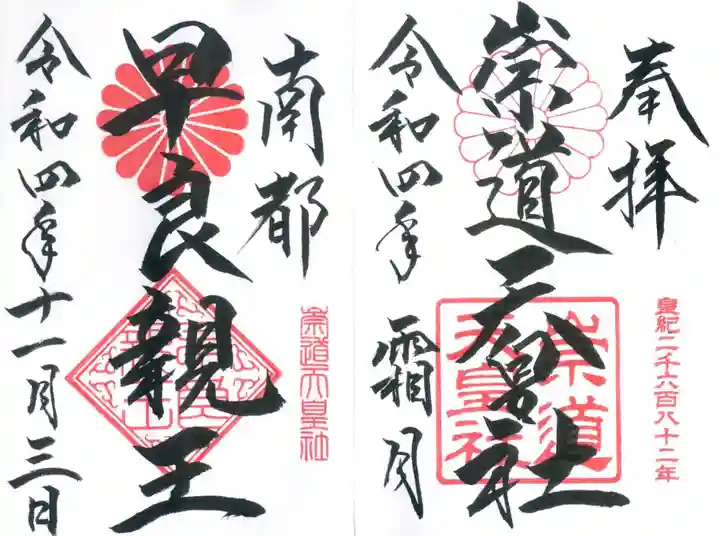 奉拝
皇紀二千六百八十二年
崇道天皇社
崇道
天皇社
令和四年
霜月
南都
崇道天皇社
早良親王
令和四年十一月三日